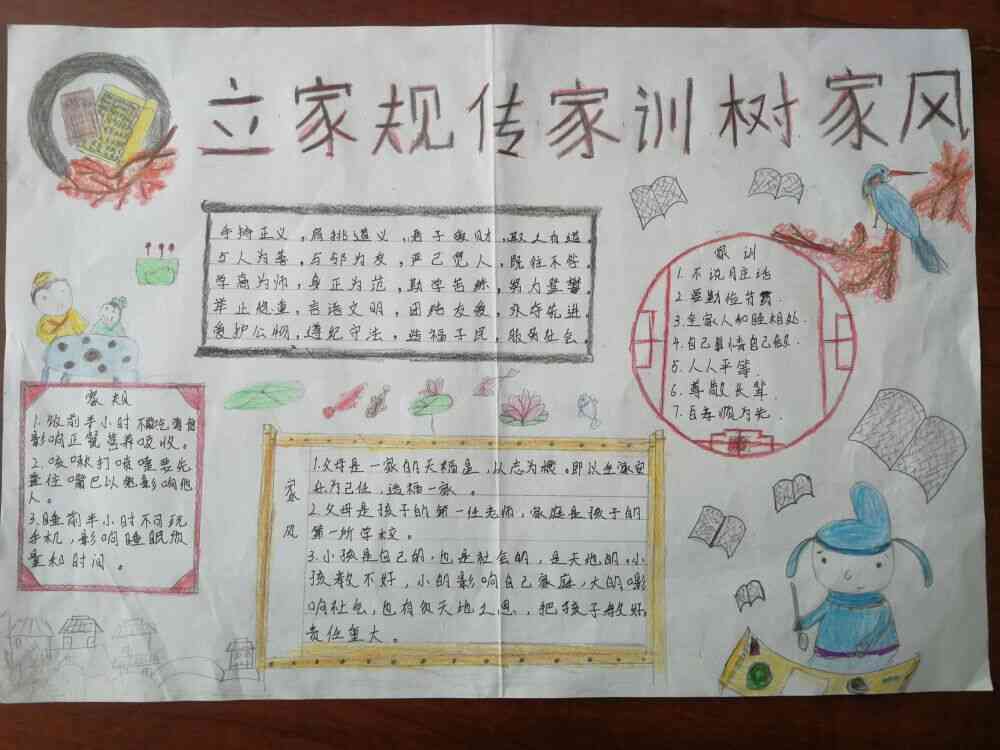 立家规传家训树家风
手持正义，肩挑道义，君子爱财，取之有道。
与人为善，与邻为友，严己宽人，既往不咎。
学高为师，身正为范，勤学苦练，努力攀攀。
举止稳重，言语文明，团结友爱，永夺先进。
爱护公物，遵纪守法，造福子民，服务社包。
家训
1.不说脏话
2.要勤俭节
3.全家人和睦相处.
4.自己事情自己做.
5.人人平等.
6.尊敬长辈.
7.百孝顺为先.
家规
1.饭前半小时不能吃零食
影响正常营养吸收。
2.咳嗽打喷嚏要先
盖住嘴巴以免影响他
人。
3.睡前半小时不可玩
手机，影响睡眠质
量和时间。
家风
1.父母是一家的天福星，以志为
为己任，造福一家。
2.父母是孩子的第一任老师，家庭是孩子的
第一所学校。
3.小孩是自己的.也是社会的，是天地的，小
孩教不好，小的影响自己家庭，大的影
响社包，也有负天地之恩，把孩子教好
责任重大。